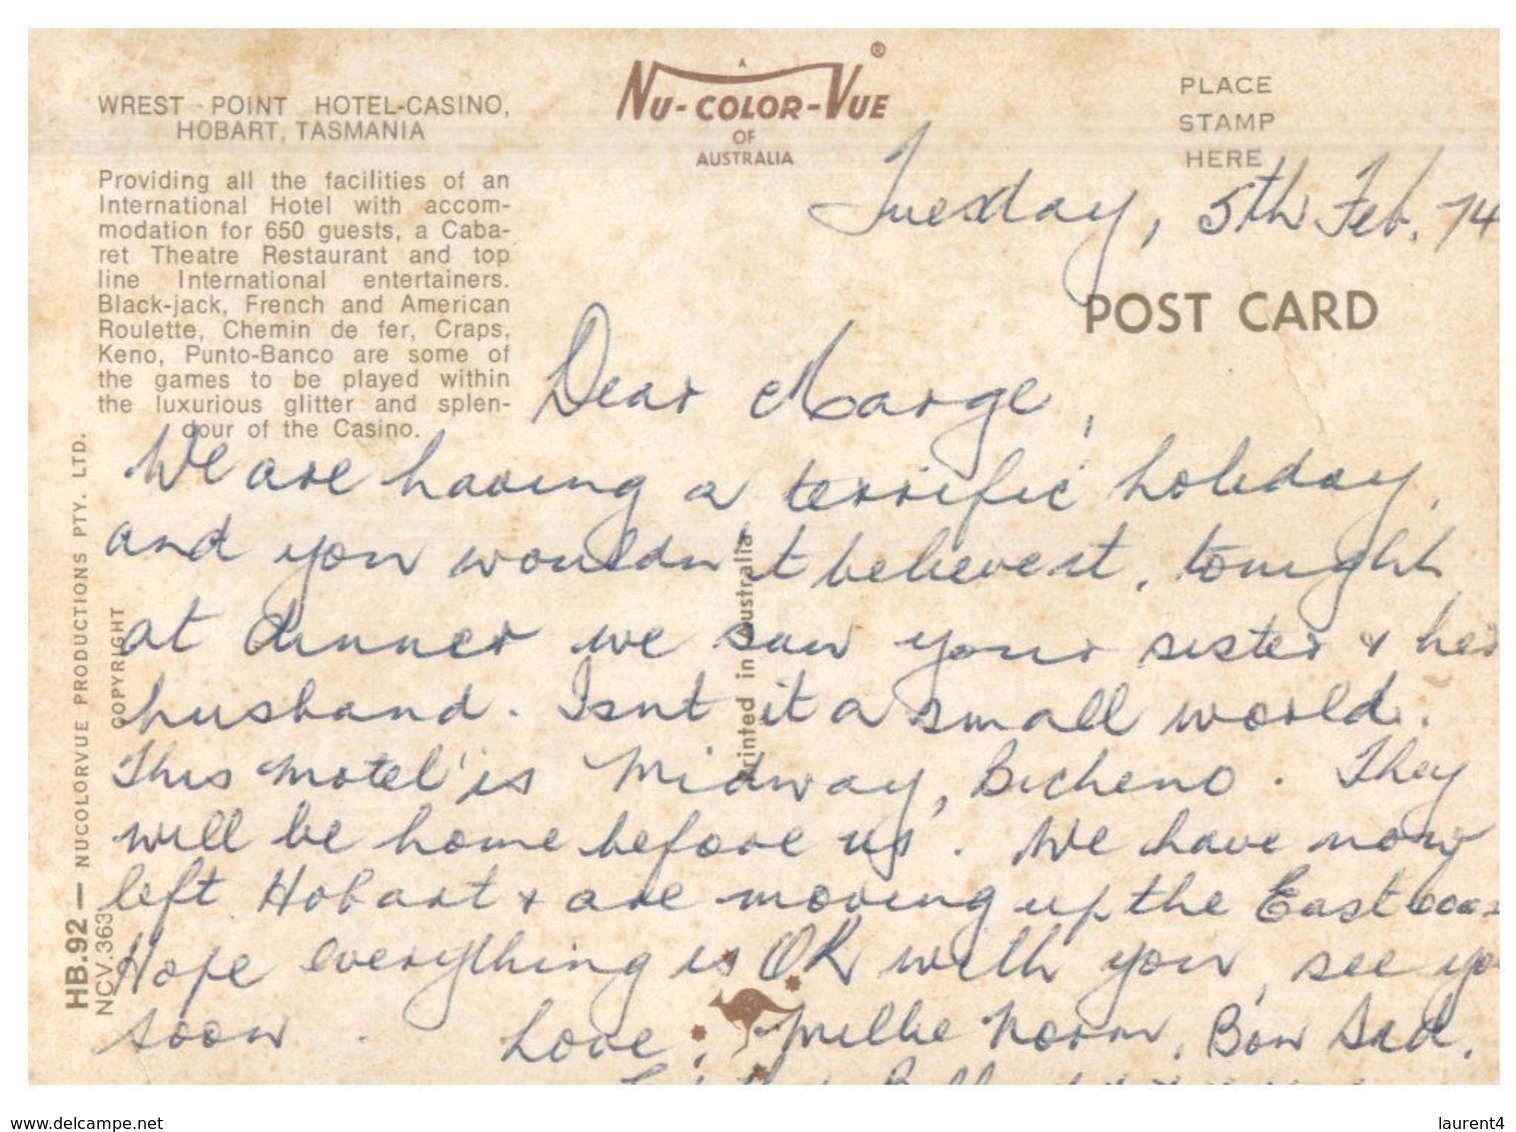 WREST POINT HOTEL-CASINO,
HOBART, TASMANIA
Providing all the facilities of an
International Hotel with accom-
modation for 650 guests, a Caba-
ret Theatre Restaurant and top
line International entertainers.
Black-jack, French and American
Roulette, Chemin de fer, Craps,
Keno, Punto-Banco are some of
the games to be played within
the luxurious glitter and splen-
dour of the Casino.
A
NU-COLOR-VUE®
OF
AUSTRALIA
PLACE
STAMP
HERE
Tuesday, 5th Feb. 74
POST CARD
Dear Marge,
We are having a terrific holiday,
and you wouldn't believe it, tonight
at dinner we saw your sister & her
husband. Isnt it a small world.
This motel is Midway, Bicheno. They
will be home before us. We have now
left Hobart & are moving up the East
Hope everything is OK with you, see yo
soon. Love, Millie Norm,
HB.92 — NUCOLORVUE PRODUCTIONS PTY. LTD.
NCV.363 COPYRIGHT
Printed in Australia
www.delcampe.net
laurent4